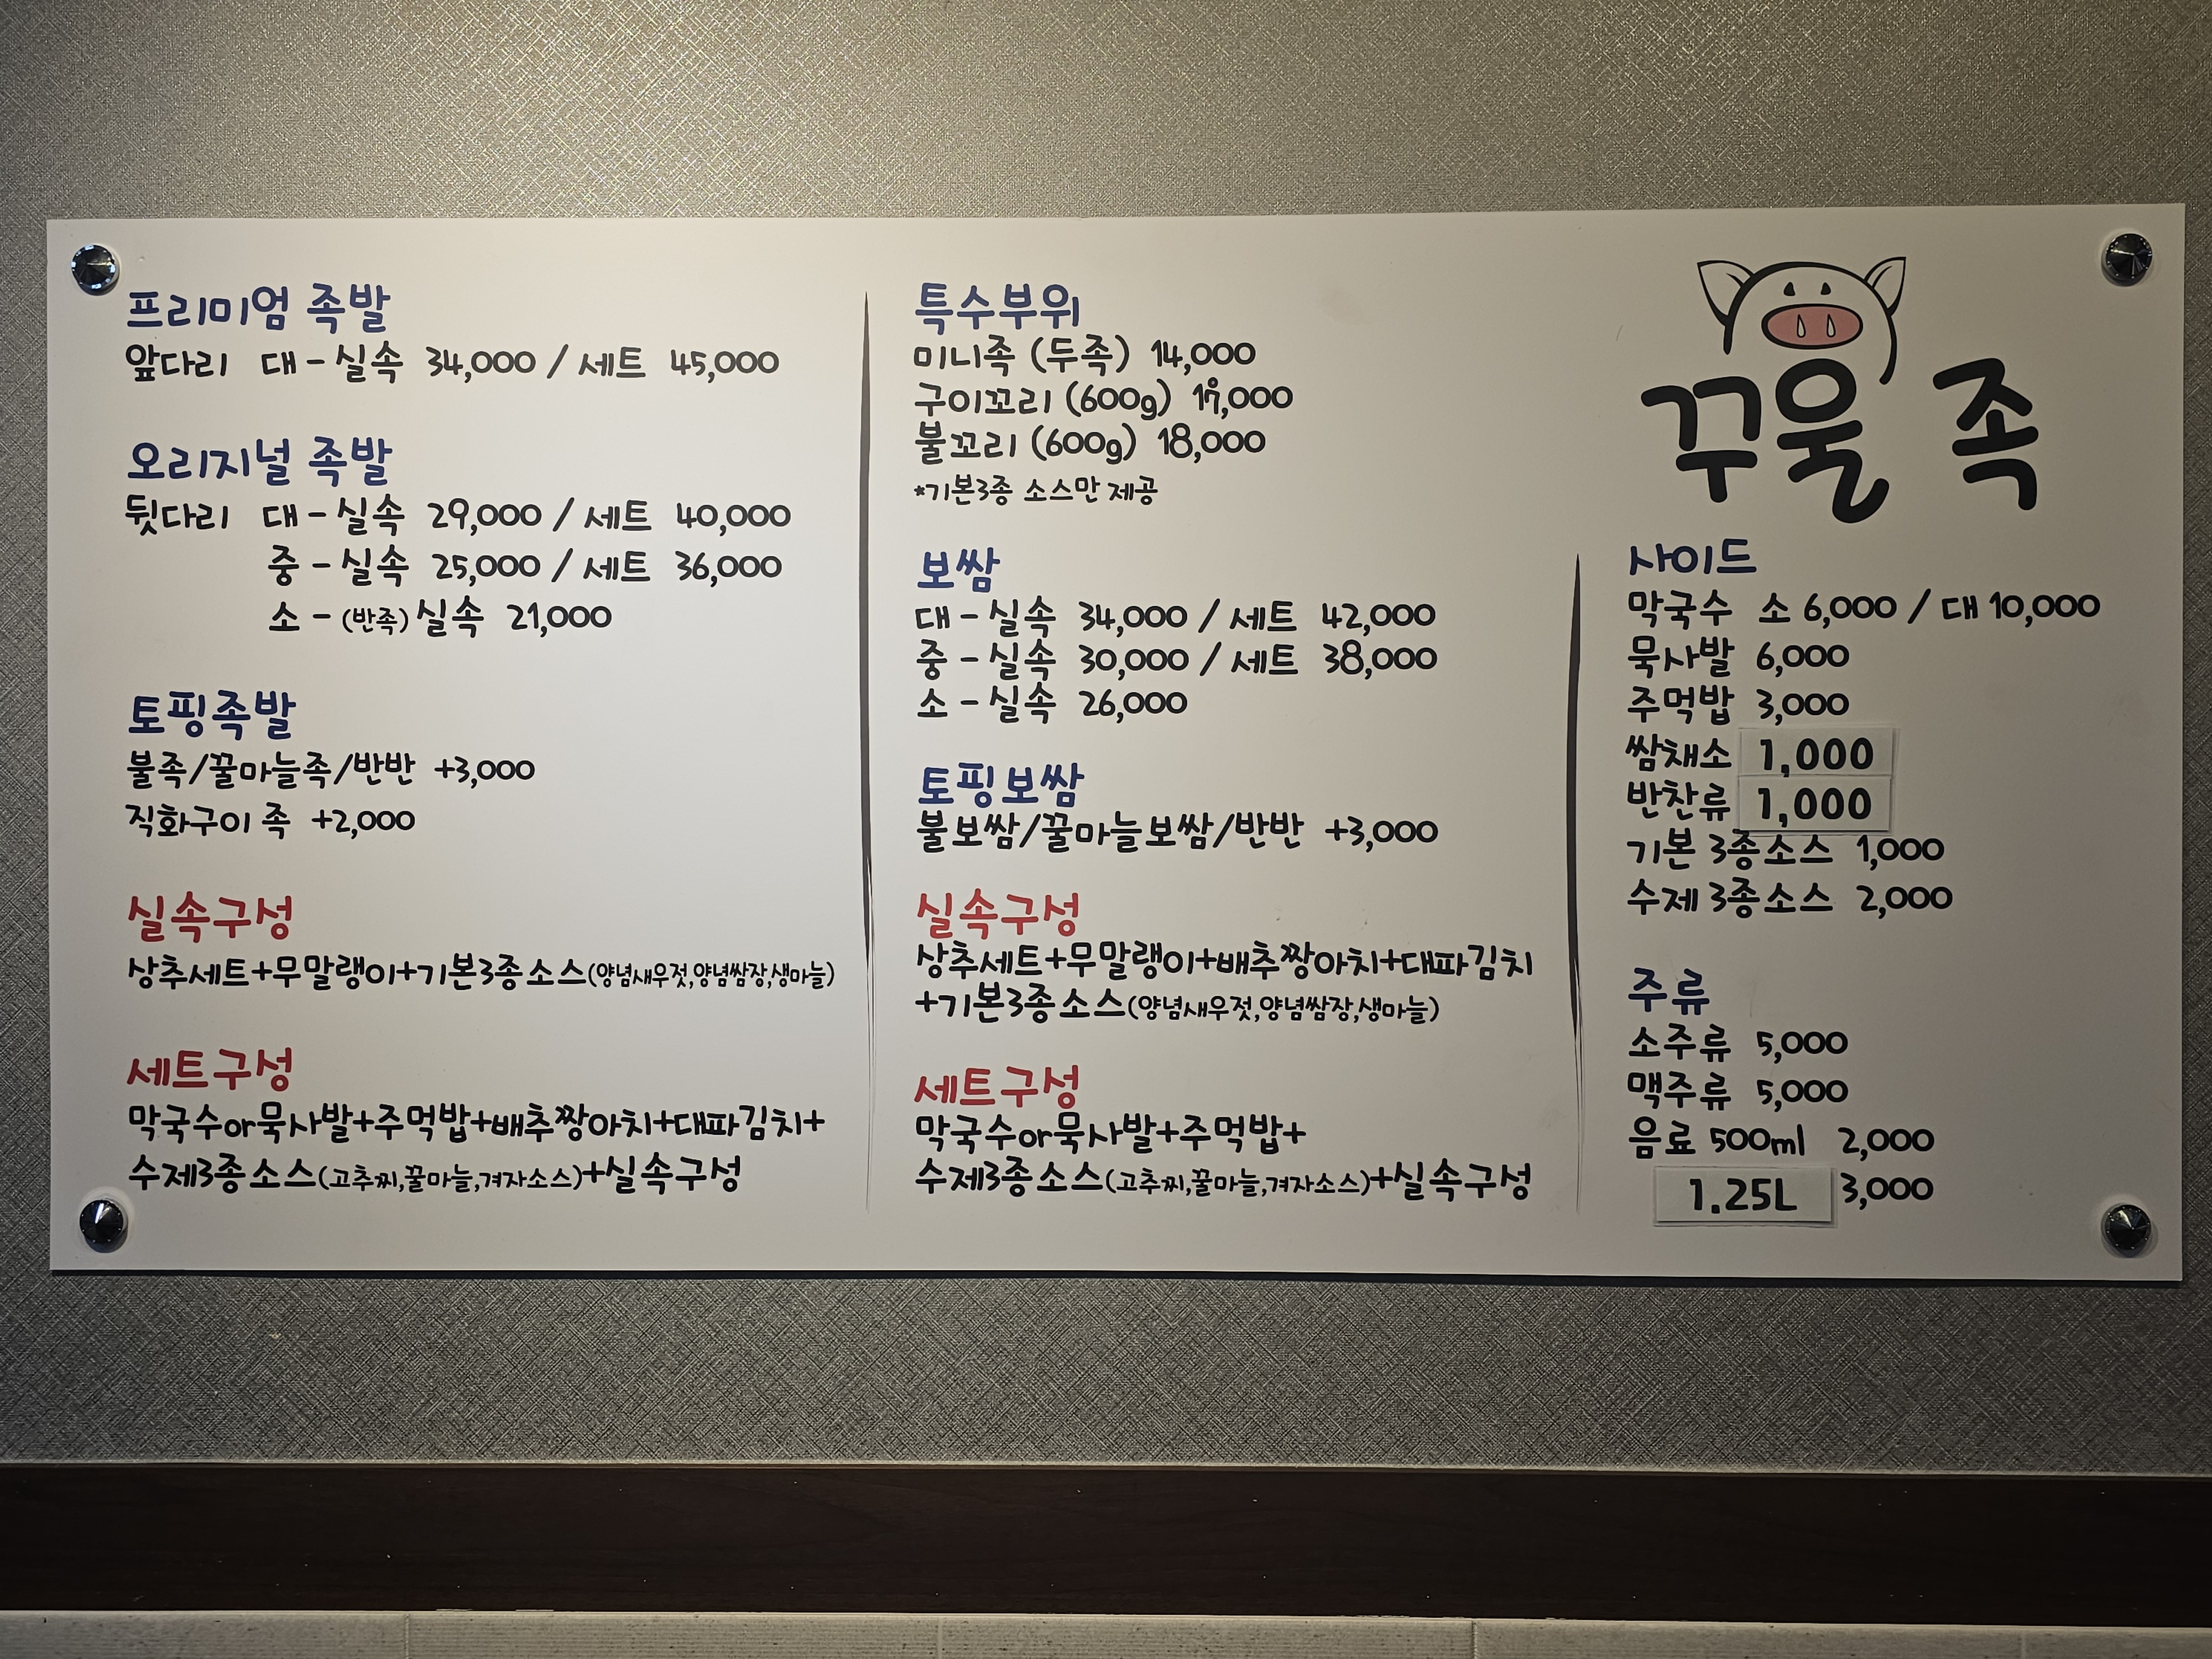 프리미엄 족발
앞다리 대 - 실속 34,000 / 세트 45,000
오리지널 족발
뒷다리 대 - 실속 29,000 / 세트 40,000
중 - 실속 25,000 / 세트 36,000
소 - (반족) 실속 21,000
토핑족발
불족/꿀마늘족/반반 +3,000
직화구이 족 +2,000
실속구성
상추세트+무말랭이+기본3종소스(양념새우젓,양념쌈장,생마늘)
세트구성
막국수or묵사발+주먹밥+배추짱아치+대파김치+
수제3종소스(고추찌,꿀마늘,겨자소스)+실속구성
특수부위
미니족 (두족) 14,000
구이꼬리 (600g)
불꼬리 (600g) 18,000
*기본3종 소스만 제공
보쌈
대 - 실속 34,000 / 세트 42,000
중 - 실속 30,000 / 세트 38,000
소 - 실속 26,000
토핑보쌈
불보쌈/꿀마늘보쌈/반반 +3,000
실속구성
상추세트+무말랭이+배추짱아치+대파김치
+기본3종소스(양념새우젓,양념쌈장,생마늘)
세트구성
막국수or묵사발+주먹밥+
수제3종소스(고추찌,꿀마늘,겨자소스)+실속구성
꾸울 족
사이드
막국수 소 6,000 / 대 10,000
묵사발 6,000
주먹밥 3,000
쌈채소 1,000
반찬류 1,000
기본 3종소스 1,000
수제 3종소스 2,000
주류
소주류 5,000
맥주류 5,000
음료 500ml 2,000
1.25L 3,000